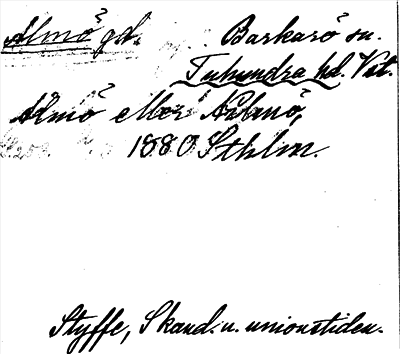 Almö gd. Barkarö sn.
Tuhundra hd. Vst.
Almö eller Alanö,
1880 Sthlm.
Styffe, Skand. u. unionstiden.